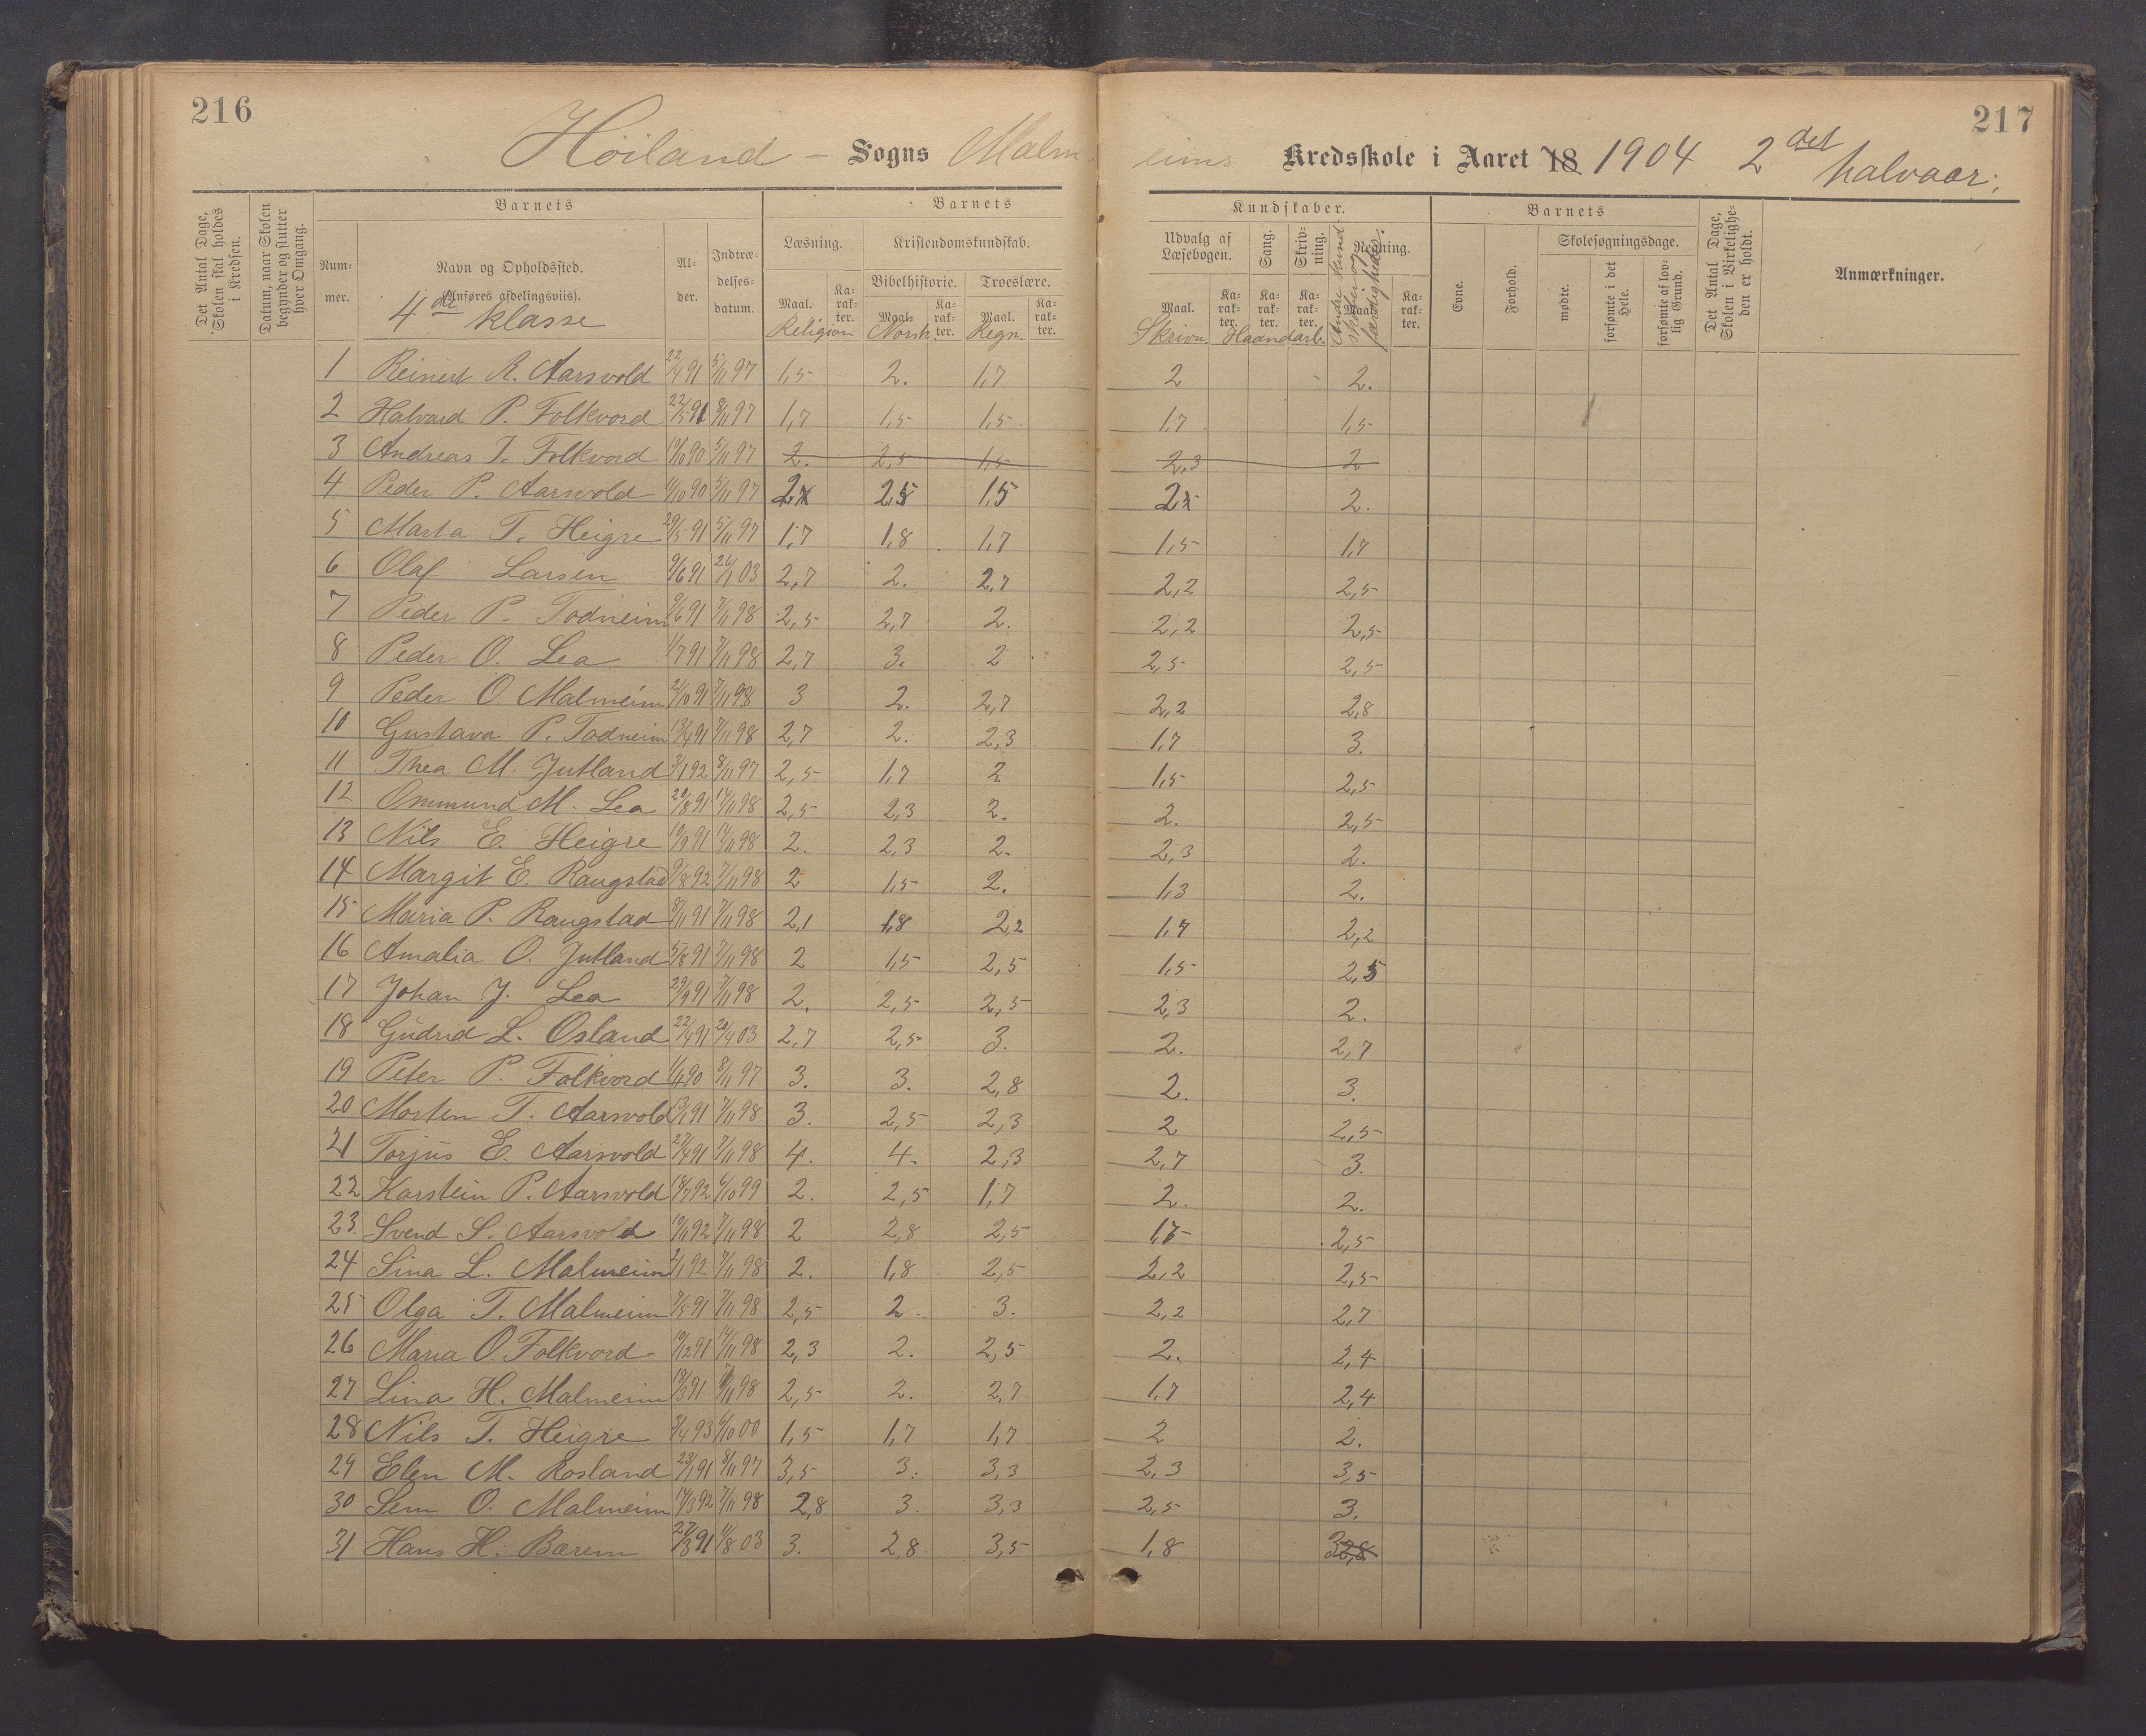 216
217
Höiland – Sogns Malm eims Kredsskole i Aaret 18 1904 2 det halvaar.
Det Antal Dage, Skolen skal holdes i Kredsen.
Datum, naar Skolen begynder og slutter hver Omgang.
Barnets
Barnets
Kundskaber.
Barnets
Det Antal Dage, Skolen i Virkeligheden er holdt.
Anmærkninger.
Nummer.
Navn og Opholdssted.
(Anføres afdelingsviis).
4de klasse
Alder.
Indtrædelsesdatum.
Læsning.
Kristendomskundskab.
Bibelhistorie.
Troeslære.
Udvalg af Læsebogen.
Sang.
Skrivning.
Regning.
Andre Kundskaber og færdigheder.
Evne.
Forhold.
Skolesøgningsdage.
mødte.
forsømte i det Hele.
forsømte af lovlig Grund.
Maal. Karakter. Maal. Karakter. Maal. Karakter. Maal. Karakter. Karakter. Karakter. Maal. Karakter.
Religion Norsk. Regn. Skrivn. Haandarb.
1 Reinert R. Aarsvold 22/4 91 5/11 97 1,5 2. 1,7 2 2.
2 Halvard P. Folkvord 22/5 91 8/11 97 1,7 1,5 1,5 1,7 1,5
3 Andreas T. Folkvord 19/10 90 5/11 97 2. 2,5 1,5 2,3 2
4 Peder P. Aarsvold 11/10 90 5/11 97 2 2,5 1,5 2 2.
5 Marta T. Heigre 29/5 91 5/11 97 1,7 1,8 1,7 1,5 1,7
6 Olaf Larsen 9/6 91 26/1 03 2,7 2. 2,7 2,2 2,5
7 Peder P. Todneim 9/6 91 7/11 98 2,5 2,7 2. 2,2 2,5
8 Peder O. Lea 1/7 91 7/11 98 2,7 3. 2 2,5 2,5
9 Peder O. Malmeim 21/10 91 7/11 98 3 2. 2,7 2,2 2,8
10 Gustava P. Todneim 13/4 91 7/11 98 2,7 2. 2,3 1,7 3.
11 Thea M. Jutland 3/1 92 8/11 97 2,5 1,7 2 1,5 2,5
12 Ommund M. Lea 20/8 91 14/11 98 2,5 2,3 2. 2. 2,5
13 Nils E. Heigre 10/9 91 14/11 98 2. 2,3 2. 2,3 2.
14 Margit E. Raugstad 9/8 92 7/11 98 2 1,5 2. 1,3 2.
15 Maria P. Raugstad 8/11 91 7/11 98 2,1 1,8 2,2 1,7 2,2
16 Amalia O. Jutland 5/8 91 7/11 98 2 1,5 2,5 1,5 2,5
17 Johan J. Lea 29/9 91 7/11 98 2. 2,5 2,5 2,3 2.
18 Gudrid L. Osland 22/4 91 20/4 03 2,7 2,5 3. 2. 2,7
19 Peter P. Folkvord 1/4 90 8/11 97 3. 3. 2,8 2. 3.
20 Morten T. Aarsvold 13/1 91 7/11 98 3. 2,5 2,3 2 2,5
21 Torjus E. Aarsvold 27/4 91 7/11 98 4. 4. 2,3 2,7 3.
22 Karstein P. Aarsvold 18/7 92 6/10 99 2. 2,5 1,7 2. 2.
23 Svend S. Aarsvold 19/11 92 7/11 98 2 2,8 2,5 1,5 2,5
24 Sina L. Malmeim 2/1 92 7/11 98 2. 1,8 2,5 2,2 2,5
25 Olga T. Malmeim 7/5 91 7/11 98 2,5 2. 3. 2,2 2,7
26 Maria O. Folkvord 19/12 91 14/11 98 2,3 2. 2,5 2. 2,4
27 Lina H. Malmeim 18/3 91 7/11 98 2,5 2. 2,7 1,7 2,4
28 Nils T. Heigre 3/4 93 6/10 00 1,5 1,7 1,7 2 2.
29 Elen M. Rosland 23/1 91 8/11 97 3,5 3. 3,3 2,3 3,5
30 Sem O. Malmeim 14/3 92 7/11 98 2,8 3. 3,3 2,5 3.
31 Hans H. Bærem 27/3 91 11/8 03 3. 2,8 3,5 1,8 3 2,8